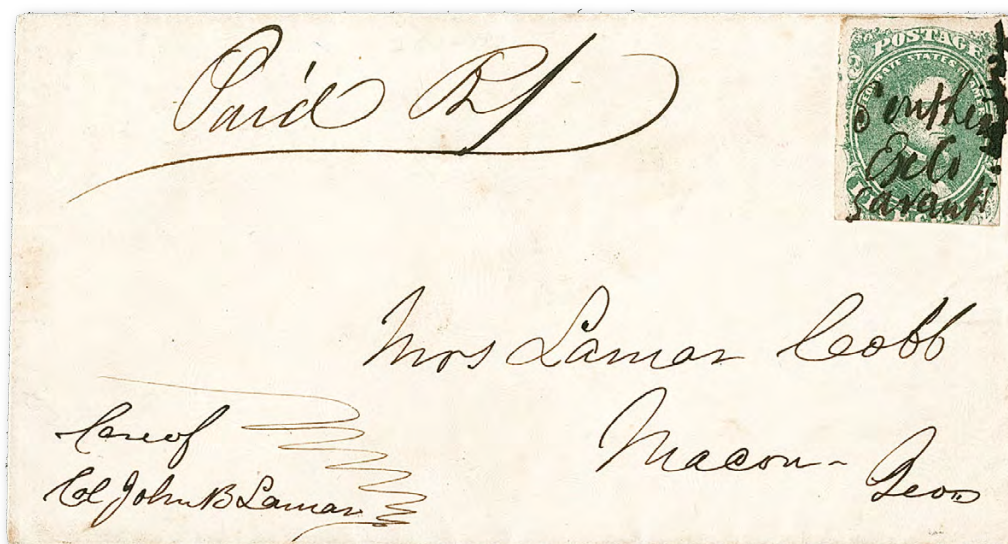 Paid
POSTAGE
STATES
Southern
Ex Co
Savant
Mrs Lamar Cobb
Macon -
Geo
Care of
Col John B Lamar